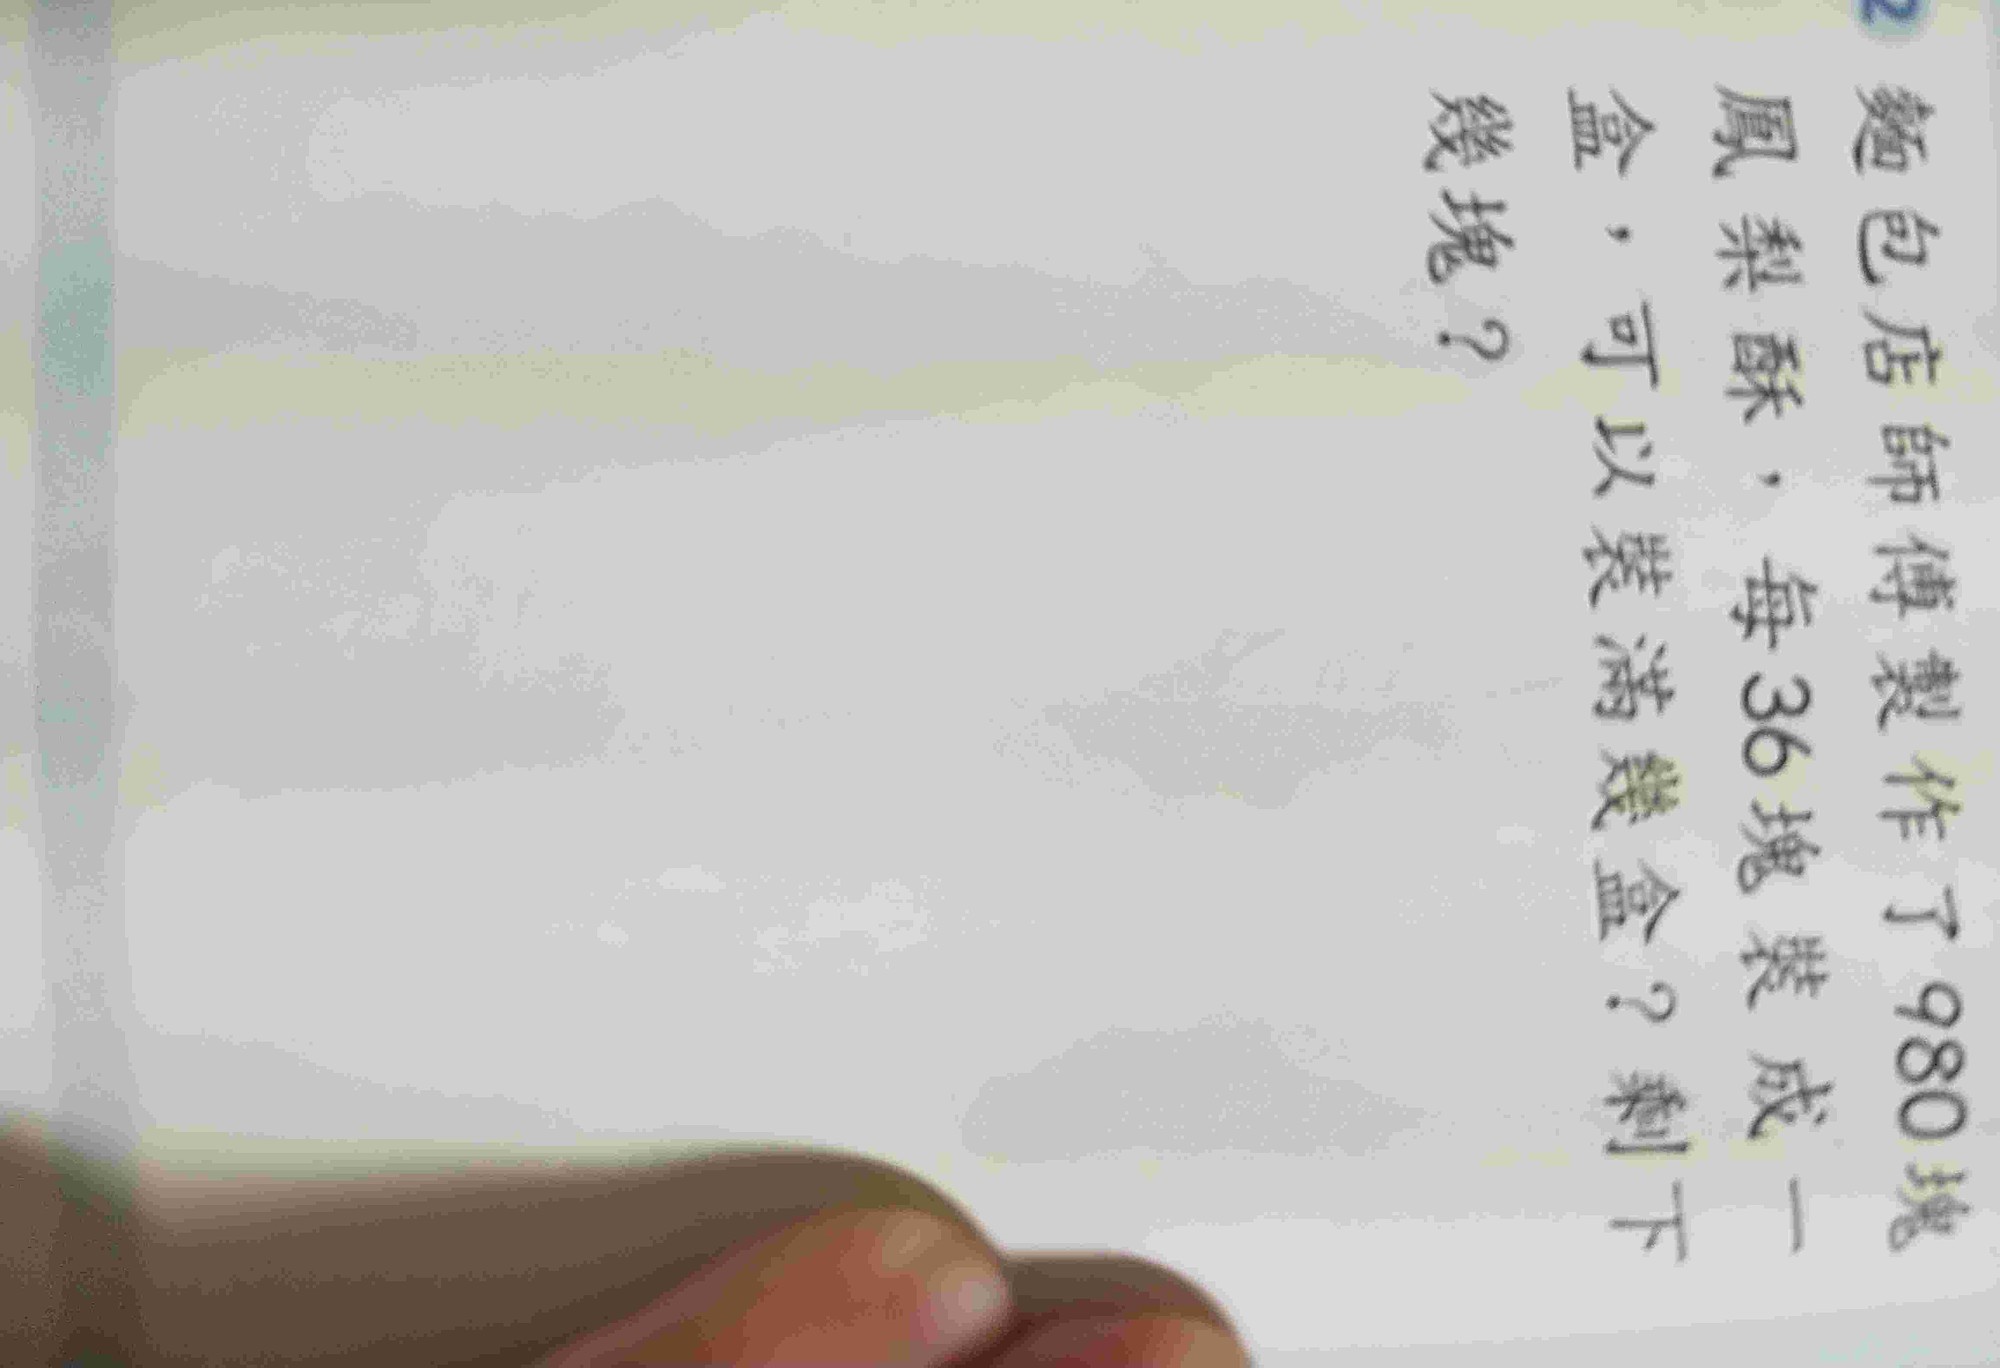 2
麵包店師傅製作了980塊
鳳梨酥，每36塊裝成一
盒，可以裝滿幾盒？剩下
幾塊？